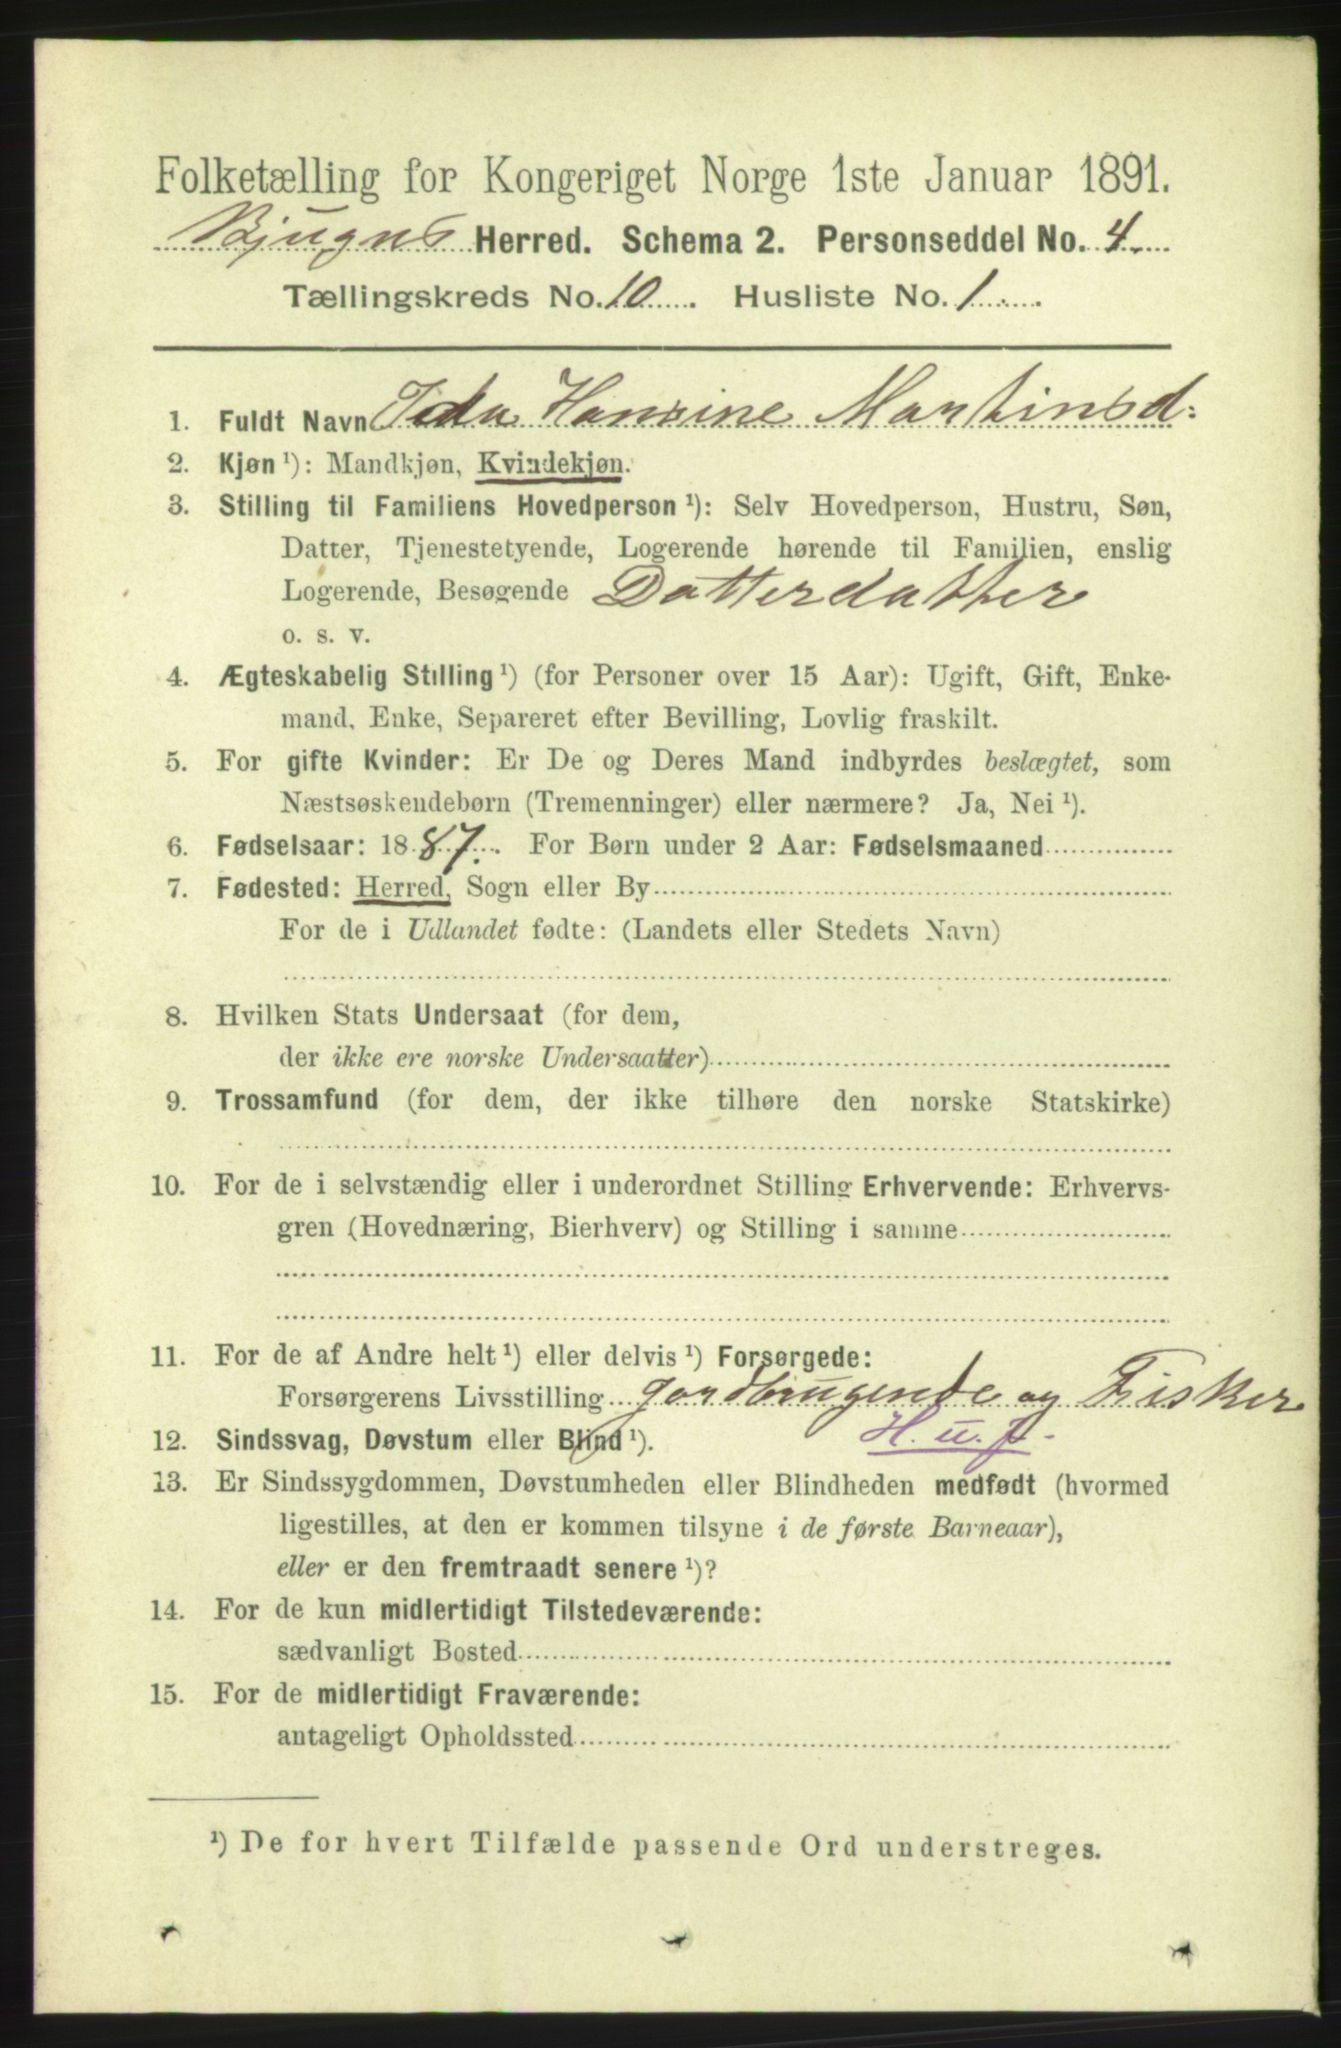 Folketælling for Kongeriget Norge 1ste Januar 1891.
Bjugns Herred. Schema 2. Personseddel No. 4
Tællingskreds No. 10 Husliste No. 1
1. Fuldt Navn Ida Hansine Martinsd:
2. Kjøn¹): Mandkjøn, Kvindekjøn.
3. Stilling til Familiens Hovedperson¹): Selv Hovedperson, Hustru, Søn,
Datter, Tjenestetyende, Logerende hørende til Familien, enslig
Logerende, Besøgende Datterdatter
o. s. v.
4. Ægteskabelig Stilling¹) (for Personer over 15 Aar): Ugift, Gift, Enke-
mand, Enke, Separeret efter Bevilling, Lovlig fraskilt.
5. For gifte Kvinder: Er De og Deres Mand indbyrdes beslægtet, som
Næstsøskendebørn (Tremenninger) eller nærmere? Ja, Nei¹).
6. Fødselsaar: 1887. For Børn under 2 Aar: Fødselsmaaned
7. Fødested: Herred, Sogn eller By
For de i Udlandet fødte: (Landets eller Stedets Navn)
8. Hvilken Stats Undersaat (for dem,
der ikke ere norske Undersaatter)
9. Trossamfund (for dem, der ikke tilhøre den norske Statskirke)
10. For de i selvstændig eller i underordnet Stilling Erhvervende: Erhvervs-
gren (Hovednæring, Bierhverv) og Stilling i samme
11. For de af Andre helt¹) eller delvis¹) Forsørgede:
Forsørgerens Livsstilling gardbrugende og Fisker
12. Sindssvag, Døvstum eller Blind¹). H. u. f.
13. Er Sindssygdommen, Døvstumheden eller Blindheden medfødt (hvormed
ligestilles, at den er kommen tilsyne i de første Barneaar),
eller er den fremtraadt senere¹)?
14. For de kun midlertidigt Tilstedeværende:
sædvanligt Bosted
15. For de midlertidigt Fraværende:
antageligt Opholdssted
¹) De for hvert Tilfælde passende Ord understreges.